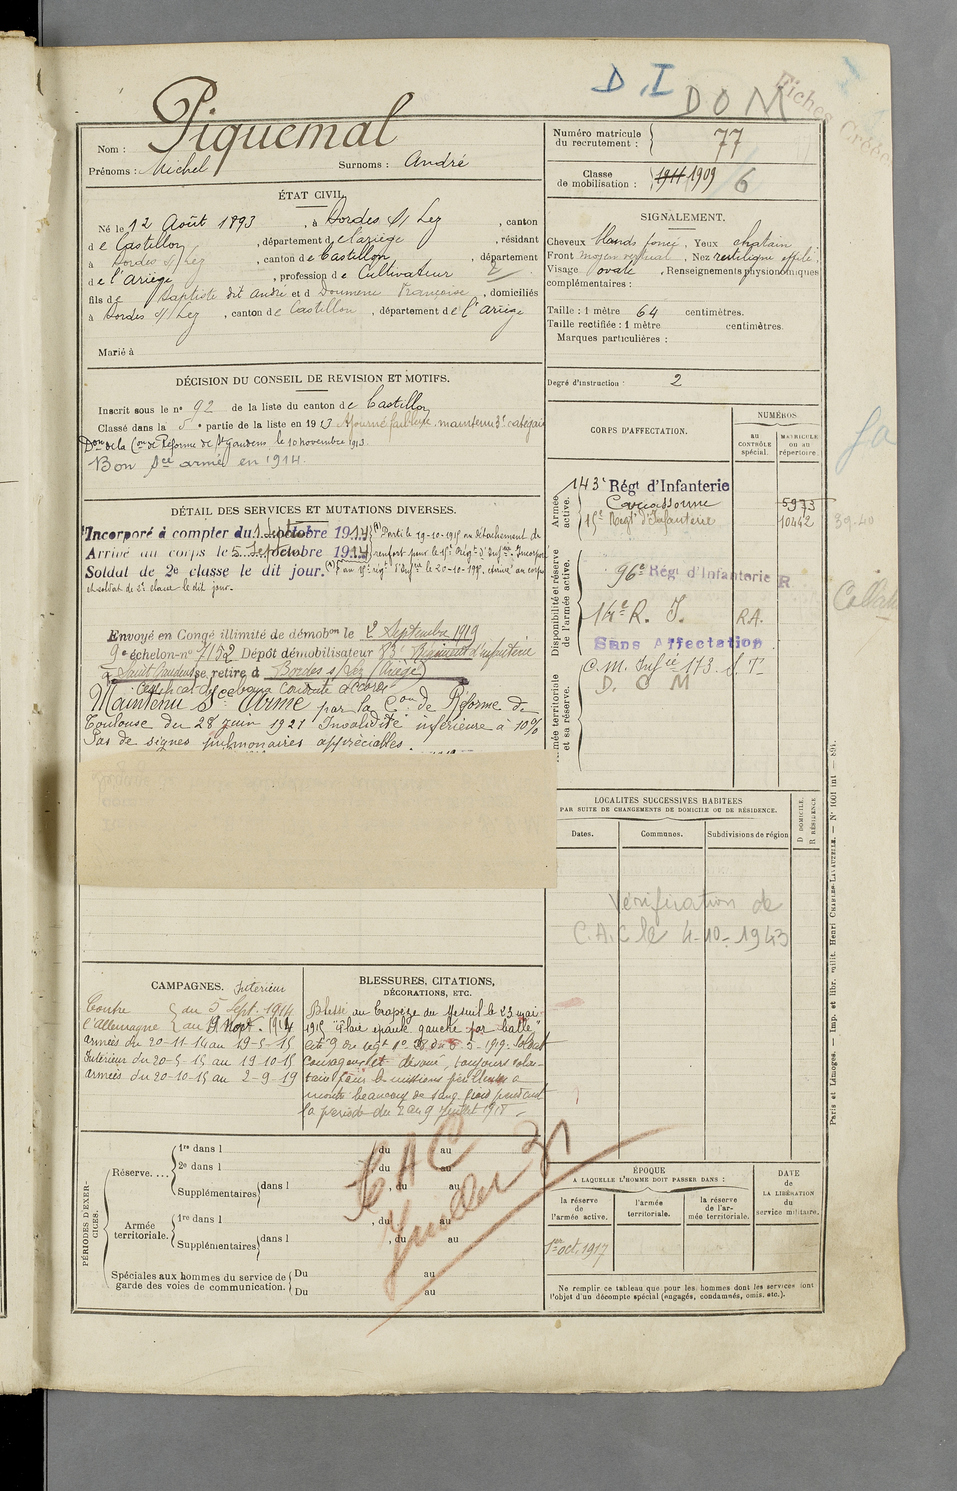 D.I DOM
Fiches
Piquemal
Nom :
Prénoms : Michel Surnoms : André
Numéro matricule
du recrutement : 77
Classe
de mobilisation : 1911 1909
/6
ÉTAT CIVIL.
Né le 12 Août 1893, à Bordes s/ Lez, canton
de Castillon, département de l'ariège, résidant
à Bordes s/ Lez, canton de Castillon, département
de l'Ariège, profession de Cultivateur
fils de Baptiste dit André et de Doumenc Françoise, domiciliés
à Bordes s/ Lez, canton de Castillon, département de l'Ariège
Marié à
SIGNALEMENT.
Cheveux blonds foncé, Yeux chatain
Front moyen vertical, Nez rectiligne effilé,
Visage ovale, Renseignements physionomiques
complémentaires :
Taille : 1 mètre 64 centimètres.
Taille rectifiée : 1 mètre centimètres.
Marques particulières :
Degré d'instruction : 2
DÉCISION DU CONSEIL DE REVISION ET MOTIFS.
Inscrit sous le n° 92 de la liste du canton de Castillon
Classé dans la 5e partie de la liste en 1913 Ajourné faiblesse, maintenu 3e catégorie
Don de la Con de Réforme de St Gaudens, le 10 novembre 1913.
Bon Sce armé en 1914.
DÉTAIL DES SERVICES ET MUTATIONS DIVERSES.
Incorporé à compter du 1 Septobre 1914 (A) Parti le 19-10-1915 au détachement de
Arrivé au corps le 5 Septobre 1914 renfort pour le 15e Régt d'Infie. Incorporé
Soldat de 2e classe le dit jour. (A) au 15e régt d'Infie le 20-10-1915, arrivé au corps
et soldat de 2e classe le dit jour.
Envoyé en Congé illimité de démobon le 2 Septembre 1919
9e échelon-n° 7152 Dépôt démobilisateur 83e Régiment d'infanterie
à Saint Gaudens se retire à Bordes s/ Lez (Ariège)
Certificat de bonne conduite accordé
Maintenu Sce Armé par la Con de Réforme de
Toulouse du 28 juin 1921 Invalidité inférieure à 10%
Pas de signes pulmonaires appréciables.
CORPS D'AFFECTATION.
NUMÉROS
au
CONTRÔLE
spécial.
MATRICULE
ou au
répertoire.
Armée
active.
143e Régt d'Infanterie
Carcassonne 5973
15e Régt d'Infanterie 10442
39-40
Disponibilité et réserve
de l'armée active.
96e Régt d'Infanterie R
14e R. I. RA.
Sans Affectation
Armée territoriale
et sa réserve.
C.M. Infie 173 S.T
D. O M
LOCALITÉS SUCCESSIVES HABITÉES
PAR SUITE DE CHANGEMENTS DE DOMICILE OU DE RÉSIDENCE.
Dates.
Communes.
Subdivisions de région
D DOMICILE.
R RÉSIDENCE
Vérification de
C.A.C le 4-10-1943
CAMPAGNES. Intérieur
Contre du 5 Sept. 1914
l'Allemagne au 19 Nov. 1914
Armées du 20-11-14 au 19-5-15
Intérieur du 20-5-15 au 19-10-15
Armées du 20-10-15 au 2-9-19
BLESSURES, CITATIONS,
DÉCORATIONS, ETC.
Blessé au Trapèze du Mesnil le 23 mai
1915 "Plaie épaule gauche par balle"
Cité O du regt n° 28 du 8-5-1919. Soldat
courageux et dévoué, toujours volon-
taire pour les missions périlleuses a
montré beaucoup de sang froid pendant
la période du 2 au 9 Juillet 1918.
CAC
PÉRIODES D'EXER-
CICES.
Réserve....
1re dans l du au
2e dans l du au
Supplémentaires dans l , du au
Armée
territoriale.
1re dans l , du au
Supplémentaires dans l , du au
Spéciales aux hommes du service de
garde des voies de communication.
Du au
Du au
ÉPOQUE
A LAQUELLE L'HOMME DOIT PASSER DANS :
la réserve
de
l'armée active.
l'armée
territoriale.
la réserve
de l'ar-
mée territoriale.
DATE
de
LA LIBÉRATION
du
service militaire.
1er oct. 1917
Ne remplir ce tableau que pour les hommes dont les services font
l'objet d'un décompte spécial (engagés, condamnés, omis, etc.).
Paris et Limoges. — Imp. et libr. milit. Henri CHARLES-LAVAUZELLE. — N° 1601 int — 891.